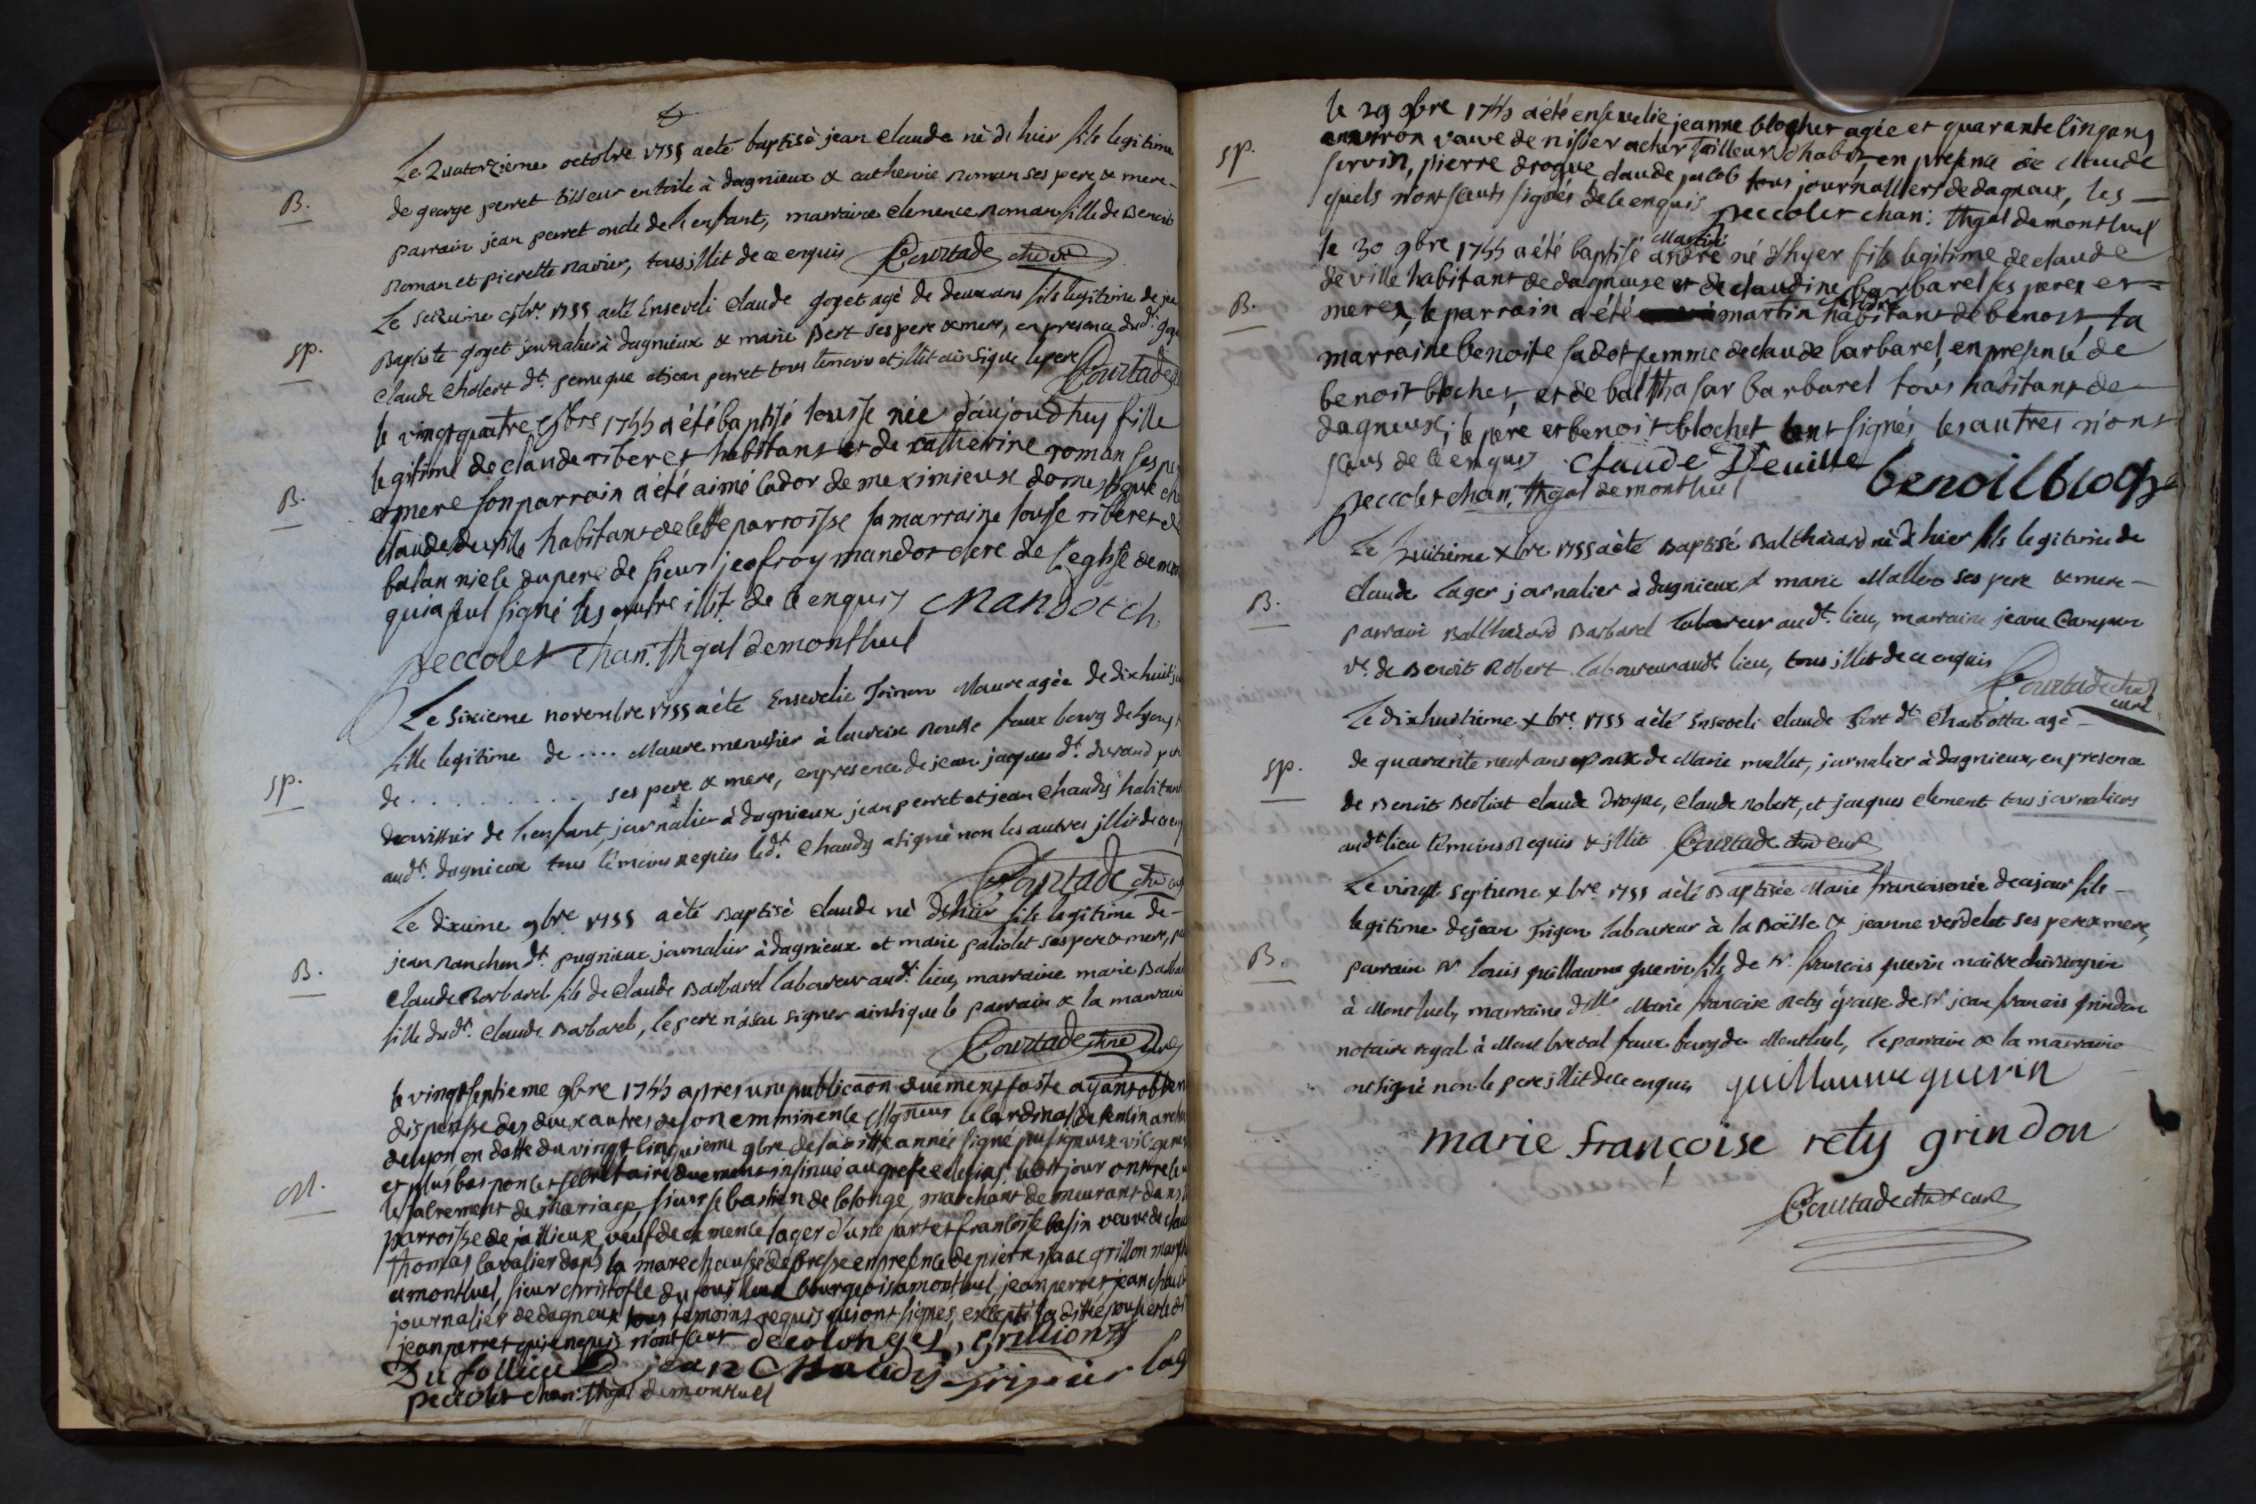 B.
Le Quatorzieme octobre 1755 aeté baptisé jean Claude né de hier fils legitime
de george perret tisseur en toile à dagnieux & catherine Roman ses pere & mere
parrain jean perret oncle de l'enfant, marraine clemence Roman fille de Benoit
Roman et pierrette navier, tous illit de ce enquis Courtade curé
sp.
Le seizieme 8bre 1755 aeté Enseveli Claude goyet agé de deux ans fils legitime de jean
Baptiste goyet journalier à dagnieux & marie Bert ses pere & mere, en presence dud. goyet
Claude Cholert dt. perruque et jean perret tous temoins et illit ainsi que le pere Courtade
B.
le vingt quatre 8bre 1755 a été baptisé louise née d'aujoud'huy fille
legitime de claude riberet habitant et de catherine roman ses
et mere son parrain a été aimé cador de meximieux domestique
claude deville habitant de cette parroisse sa marraine louise riberet
balan niece du pere de sieur jeofroy mandot clerc de l'eglise de
qui a seul signé les autre illit. de ce enquis Mandot ch.
peccolet chan. Thgal de montluel
sp.
Le sixieme novembre 1755 aeté Ensevelie Maure agée de dix huit
fille legitime de .... Maure menusier à la croix Rousse faux bourg de lyon
de .......... ses pere & mere, en presence de jean jacques dt. durand pere
nourrissier de l'enfant, journalier à dagnieux jean perret et jean Chaudy habitant
audt. dagnieux tous temoins requis ledt. Chaudy a signé non les autres illit de ce enq
Courtade curé
B.
Le dixieme 9bre 1755 aeté Baptisé Claude né d'hier fils legitime de
jean Ranchon dt. pugnieux journalier à dagnieux et marie paliolet ses pere & mere,
Claude Barbaret fils de Claude Barbaret laboureur audt. lieu, marraine marie Barba
fille dudt. Claude Barbaret, le pere n'a sceu signer ainsi que le parrain & la marraine
Courtade curé
M.
le vingt septieme 9bre 1755 apres une publicaon duement faite ayant obten
dispense des deux autres de son emminence Msgneur le cardinal de tencin
de lyon en datte du vingt cinquieme 9bre de laditte année signé
et plus bas poncet secretaire duement insinué au greffe jour
le sacrement de mariage, sieur sebastien de colonge, marchant demeurant dans
parroisse de jallieux veuf de clemence lager d'une part et francoise basin veuve de
thomas cavalier dans la marechaussée de bresse en presence de pierre isaac grillon
a montluel, sieur christofle du fouilleux bourgeois a montluel, jean perret jean chaud
journalier de dagneux tous temoins requis qui ont signés, excepté la ditte
jean perret qui enquis n'ont sceut decolonges, Grillion
Du follieux jean Chaudy
peccolet chan: Thgal de montluel
sp.
le 29 9bre 1755 a été ensevelie jeanne blochet agée et quarante cinq ans
environ veuve de nisier tailleur d'habit, en presence de claude
servin, pierre drogue claude jacob tous journalliers de dagneux, les
quels n'ont sceuts signés de ce enquis peccolet chan: Thgal de montluel
B.
le 30 9bre 1755 a été baptisé Martin andre né d'hyer fils legitime de claude
de ville habitant de dagneux et de claudine barbaret ses peres et
meres, le parrain a été martin habitant de benost, la
marraine benoite sadot femme de claude barbaret, en presence de
benoit blochet, et de balthasar barbaret tous habitant de
dagneux; le pere et benoit blochet ont signés, les autres n'ont
sceus de ce enquis, claude Deville benoit bloche
peccolet chan. Thgal de montluel
B.
Le huitieme xbre 1755 aeté Baptisé Balthazard né d'hier fils legitime de
Claude lager journalier à dagnieux & marie Mallero ses pere & mere
parrain Balthazard Barbaret laboureur audt. lieu, marraine jeane
ve. de Benoit Robert laboureur audt. lieu, tous illit de ce enquis
Courtade curé
sp.
Le dixhuitieme xbre 1755 aeté Enseveli Claude dt. Charbotta agé
de quarante neuf ans epoux de Marie mallet, journalier à dagnieux, en presence
de Benoit Berliat Claude Drogue, Claude Robert, et jacques Clement tous journaliers
audt. lieu temoins Requis & illit Courtade curé
B.
Le vingt septieme xbre 1755 aeté Baptisée Marie francoise née de ce jour fille
legitime de jean frigon laboureur à la Boësse & jeanne verdelet ses pere & mere,
parrain sr. louis guillaume guerin fils de sr. francois guerin maitre chirurgien
à Montluel, marraine dlle. Marie francoise Rety épouse de sr. jean francois grindon
notaire royal à Mont breval faux bourg de Montluel, le parrain & la marraine
ont signé non le pere illit de ce enquis guillaume guerin
marie françoise rety grindon
Courtade curé